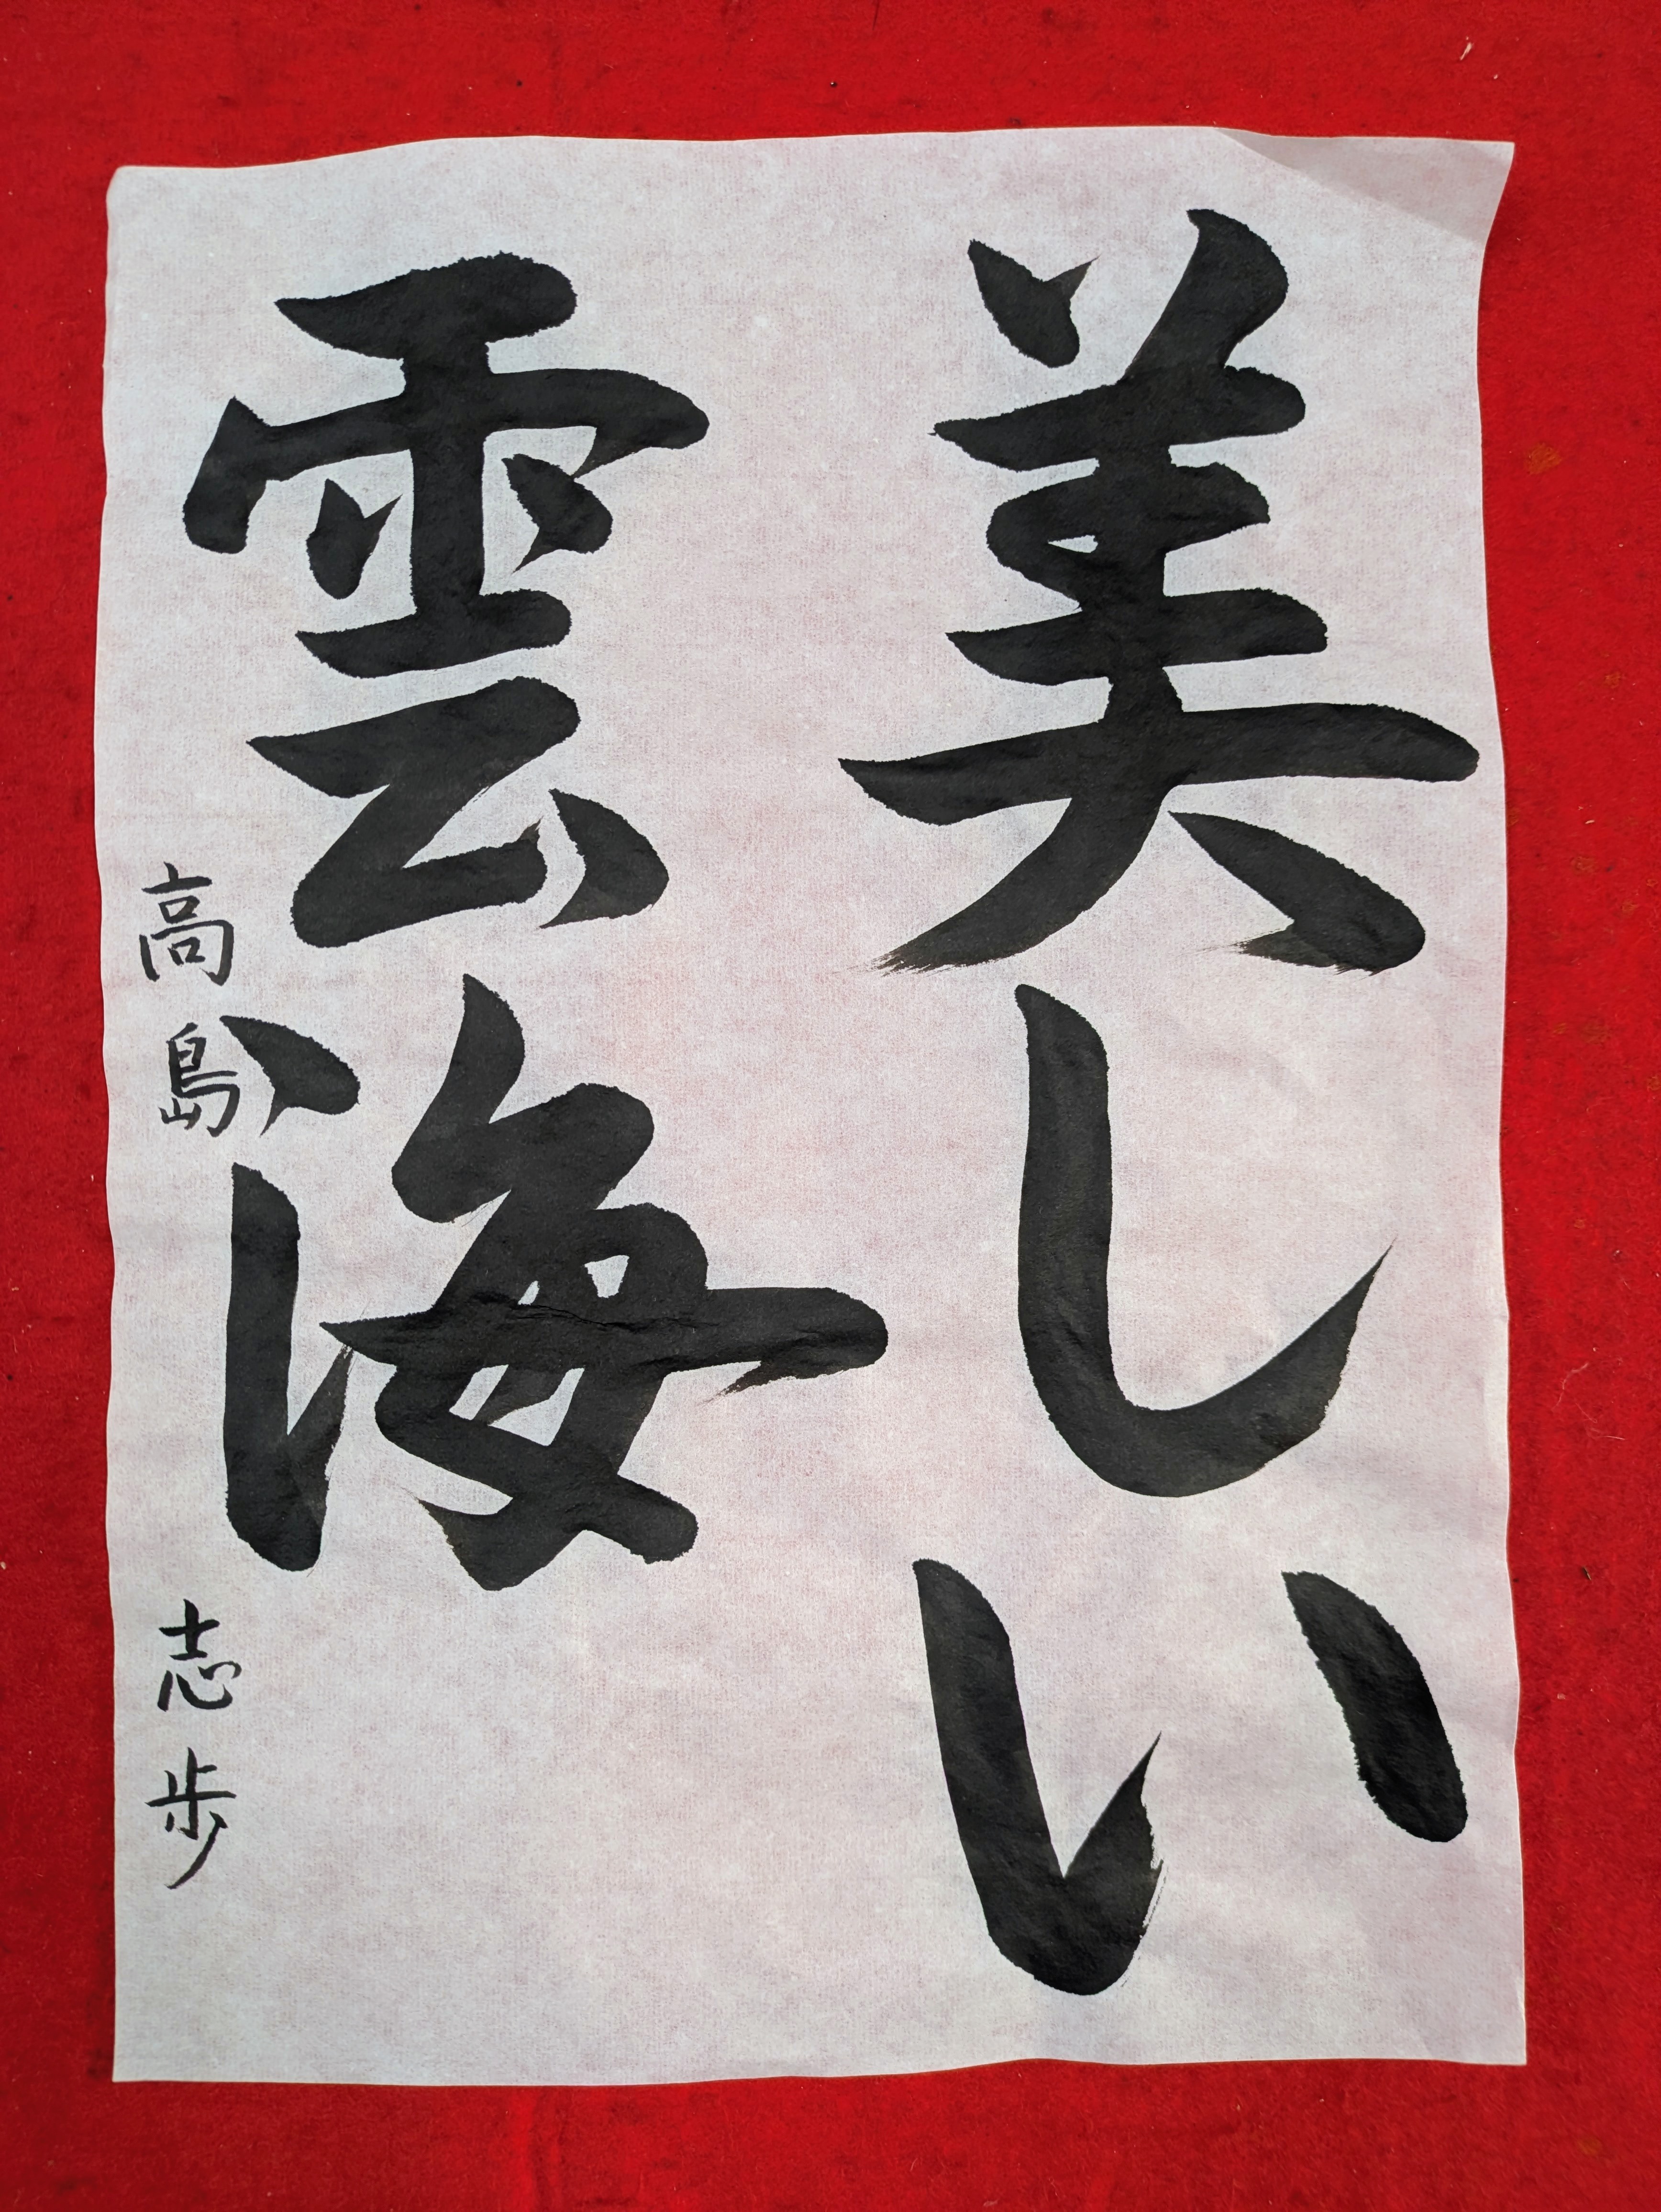 美しい
雲海
高島志歩